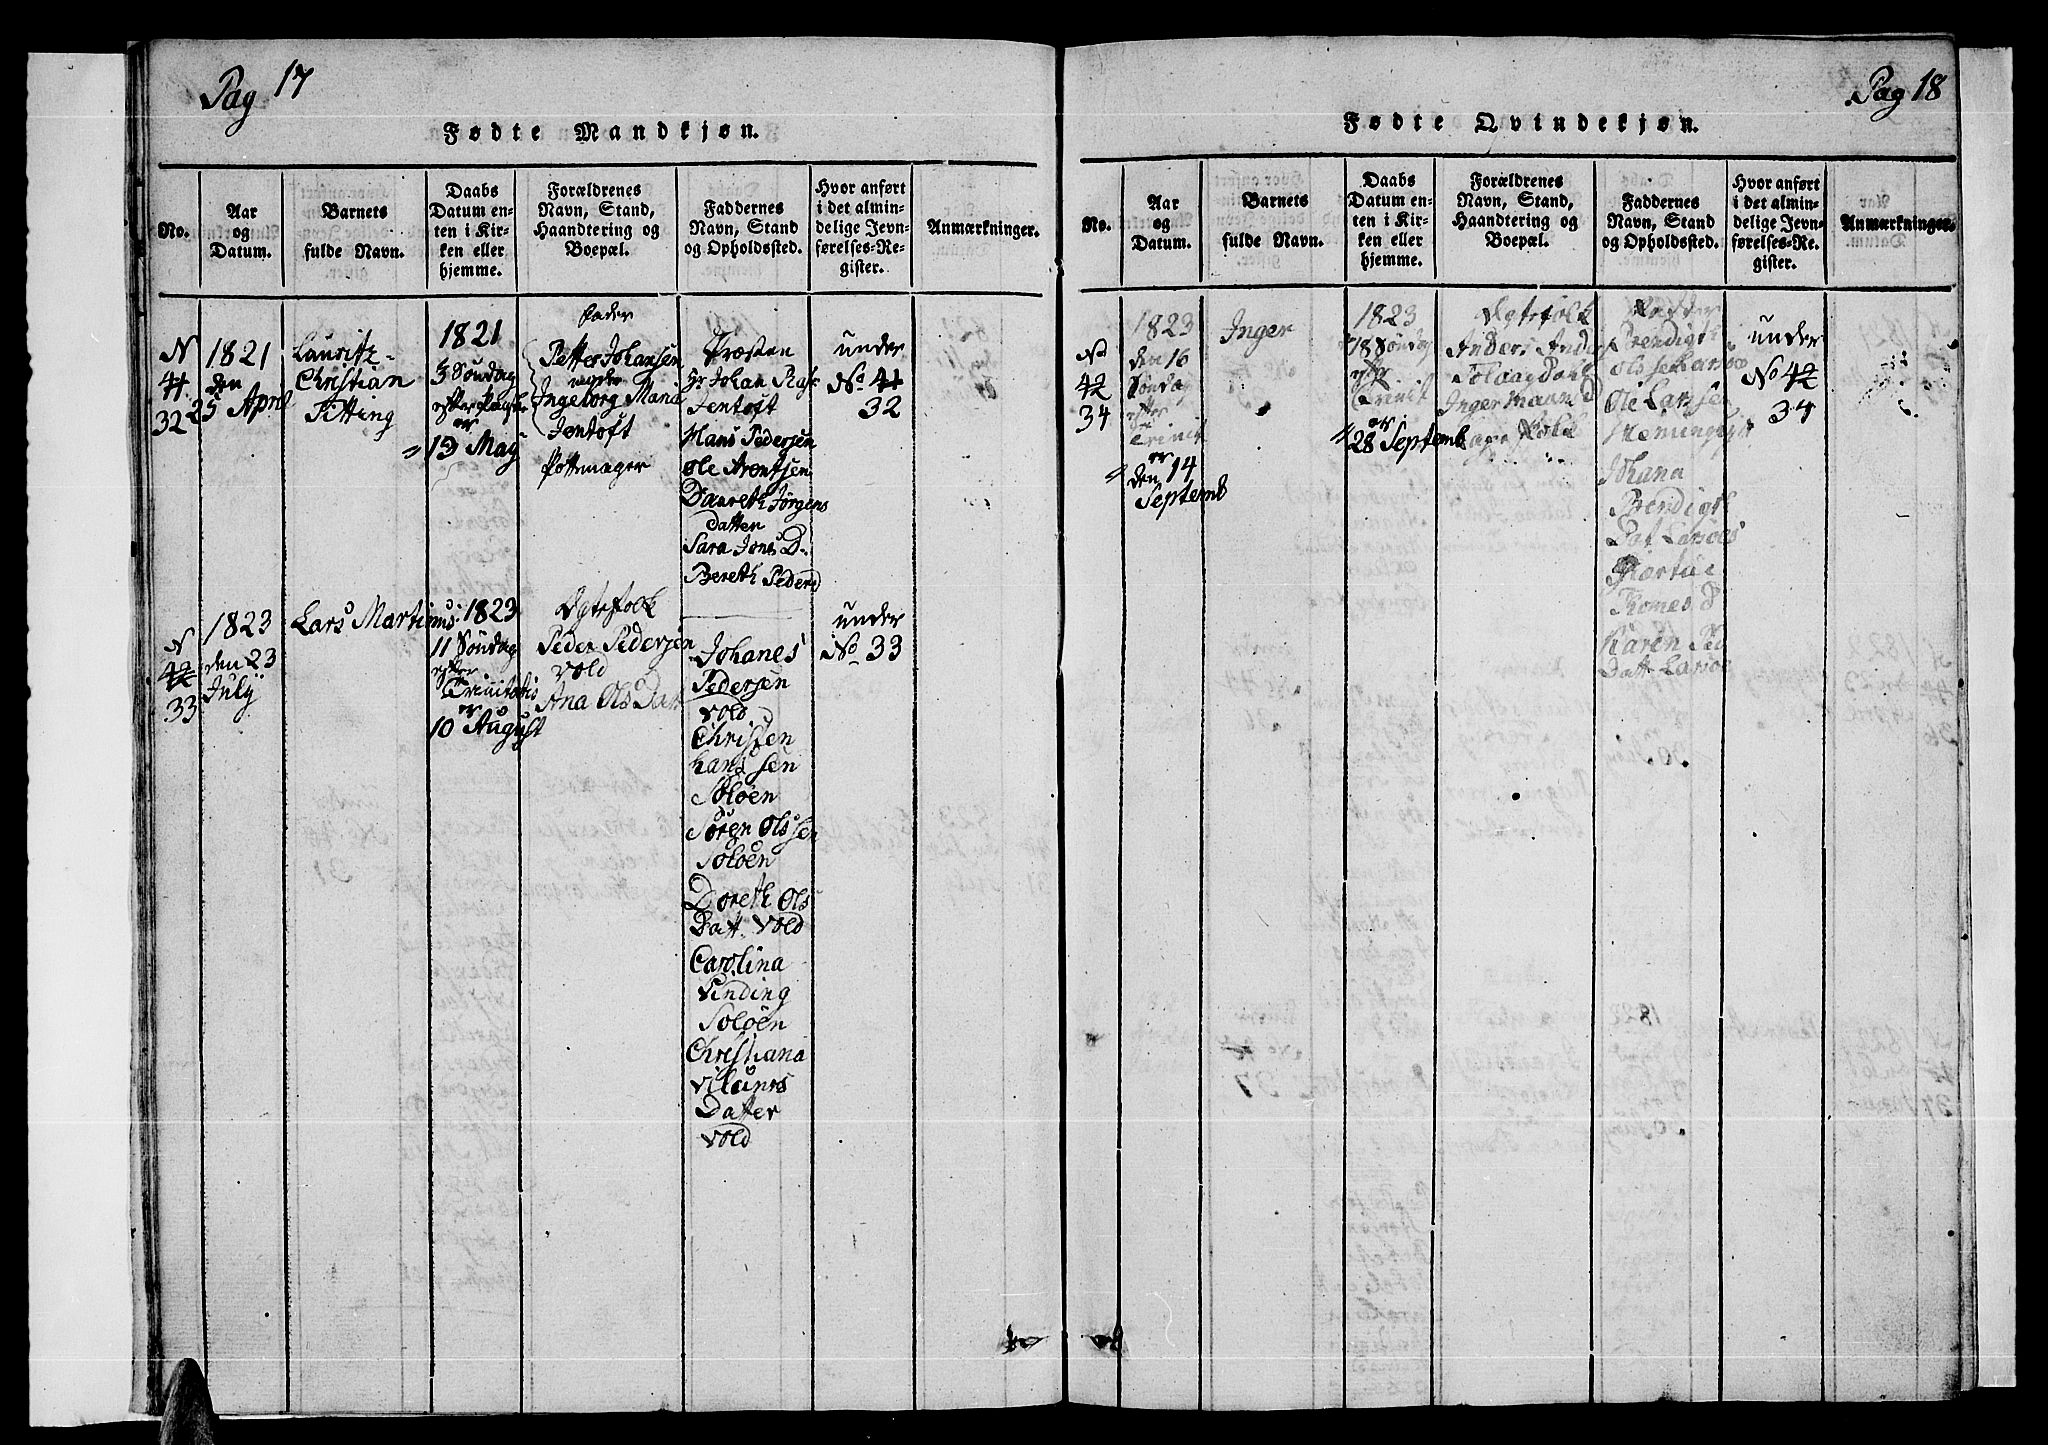 Pag 17
Fødte Mandkjøn.
No.
Aar
og
Datum.
Barnets
fulde Navn.
Daabs
Datum en-
ten i Kir-
ken eller
hjemme.
Forældrenes
Navn, Stand,
Haandtering og
Boepæl.
Faddernes
Navn, Stand
og Opholdssted.
Hvor anført
i det almin-
delige Jevn-
førelses-Re-
gister.
Anmærkninger.
N
41
32
1821
den
25 April
Lauritz
Christian
Fitting
1821
3 Søndag
efter Paask
er
= 13 May
Fader
Petter Johansen
moder
Ingeborg Maria
Jentoft
Pottmager
Præsten
Hr Johan
Jentoft
Hans Pedersen
Ole Arentsen
Daareth Jørgens
Datter
Sara Jons D
Bereth Peders D
under
No 41
32
N
42
33
1823
den 23
July
Lars Martinus
1823
11 Søndag
efter
Trinitatis
er
10 August
Ægtefolk
Peder Pedersen
Vold
Ana Ols Datt
Johanes
Pedersen
Vold
Christen
Hanssen
Soløen
Søren Olssen
Soløen
Doreth Ols
Datt. Vold
Carolina
Vinding
Soløen
Christiana
Datter
Vold
under
No 33
Pag 18
Fødte Qvindekjøn.
No.
Aar
og
Datum.
Barnets
fulde Navn.
Daabs
Datum en-
ten i Kir-
ken eller
hjemme.
Forældrenes
Navn, Stand,
Haandtering og
Boepæl.
Faddernes
Navn, Stand
og Opholdssted.
Hvor anført
i det almin-
delige Jevn-
førelses-Re-
gister.
Anmærkninger.
No
42
34
1823
den 16
Søndag
efter
Trinit
er
= den 14
Septemb
Inger
1823
18 Søndag
efter
Trinit
er
28 Septemb
Ægtefolk
Anders
Inger
Fadder
Ole Larsen
Johana
Bendigt
Karen Ped
Datt
under
No 42
34